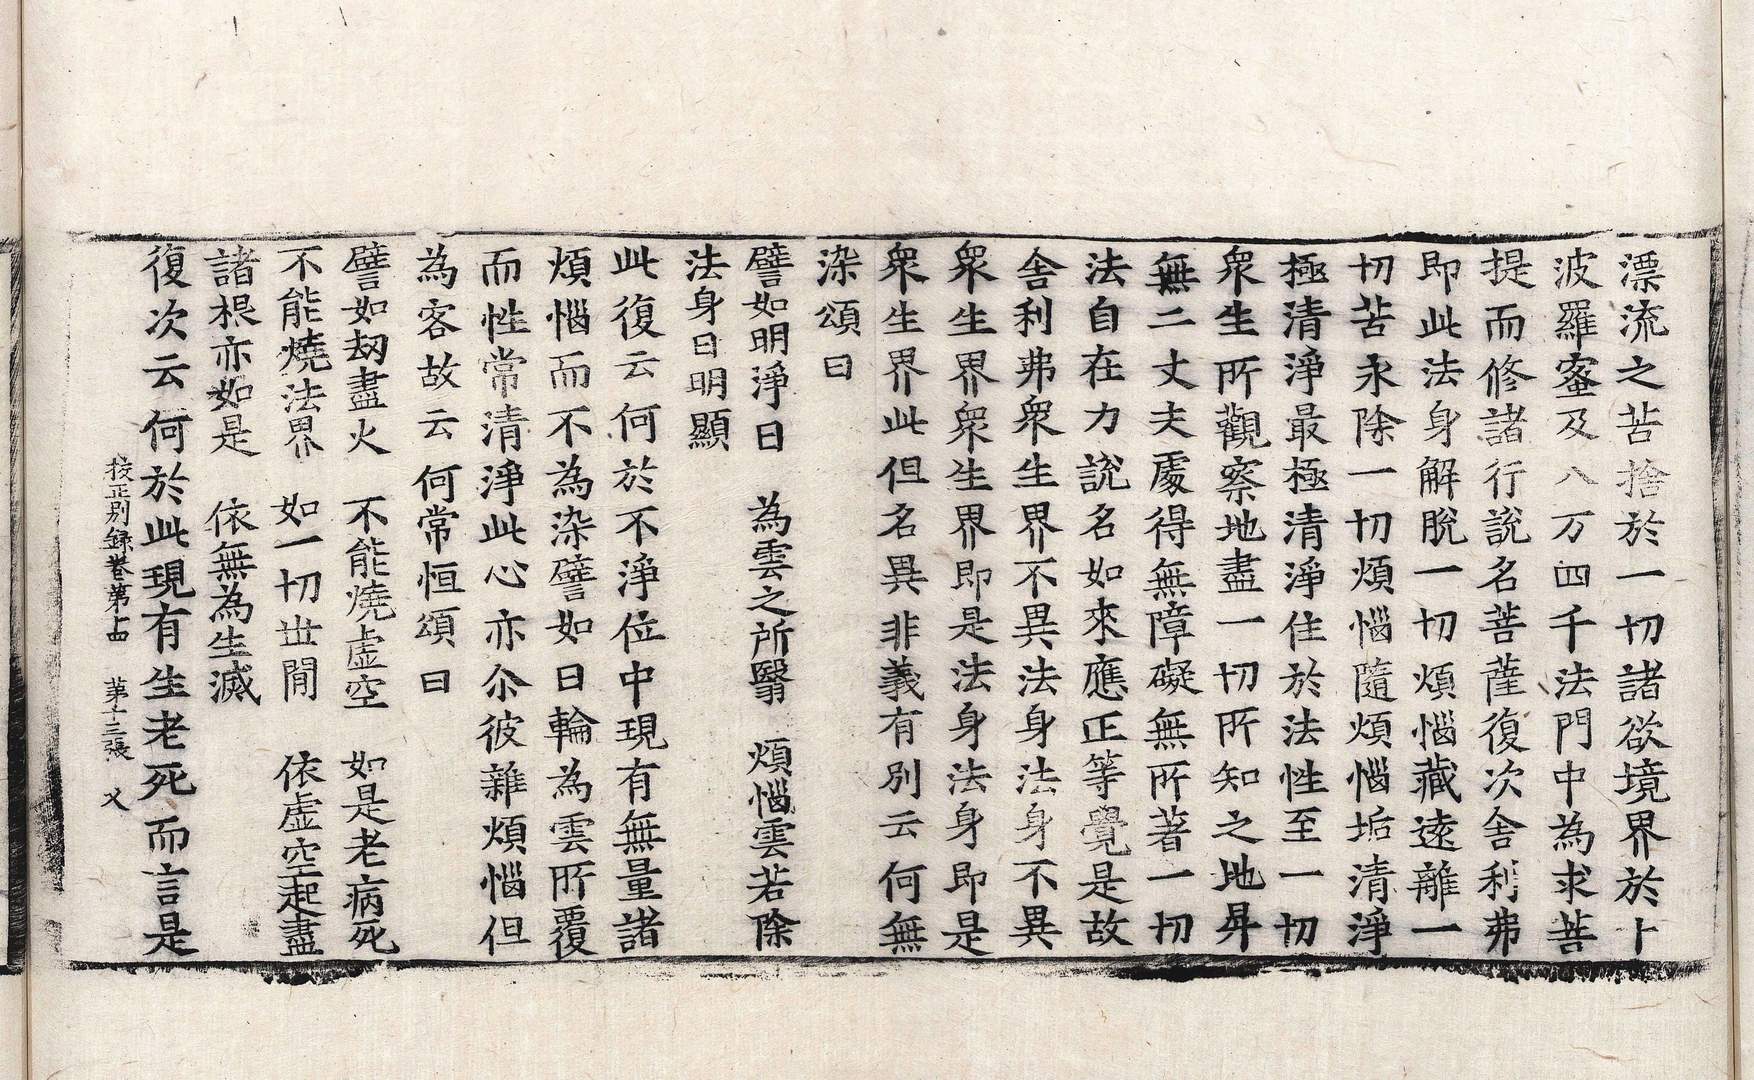 漂流之苦捨於一切諸欲境界於十
波羅蜜及八万四千法門中為求菩
提而修諸行說名菩薩復次舍利弗
即此法身解脫一切煩惱藏遠離一
切苦永除一切煩惱隨煩惱垢清淨
極清淨最極清淨住於法性至一切
衆生所觀察地盡一切所知之地昇
無二丈夫處得無障礙無所著一切
法自在力說名如來應正等覺是故
舍利弗衆生界不異法身法身不異
衆生界衆生界即是法身法身即是
衆生界此但名異非義有別云何無
染頌曰
譬如明淨日　為雲之所翳　煩惱雲若除
法身日明顯
此復云何於不淨位中現有無量諸
煩惱而不為染譬如日輪為雲所覆
而性常清淨此心亦尒彼雜煩惱但
為客故云何常恒頌曰
譬如劫盡火　不能燒虛空　如是老病死
不能燒法界　如一切世閒　依虛空起盡
諸根亦如是　依無為生滅
復次云何於此現有生老死而言是
校正別録卷第十四　第十三張　乂